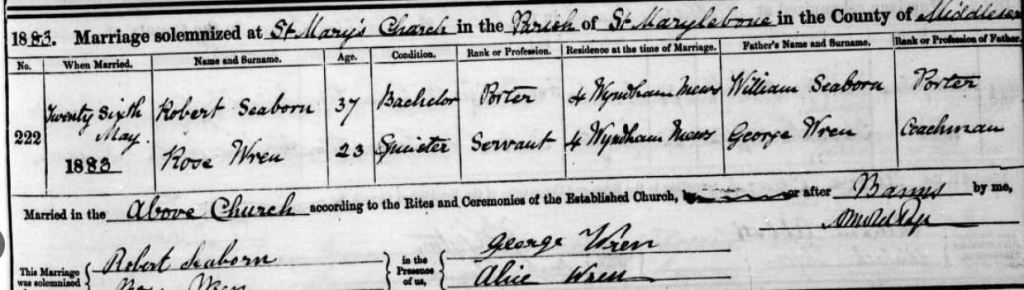 1883. Marriage solemnized at St Mary's Church in the Parish of St Marylebone in the County of Middlesex
No. When Married. Name and Surname. Age. Condition. Rank or Profession. Residence at the time of Marriage. Father's Name and Surname. Rank or Profession of Father.
222 Twenty Sixth May 1883 Robert Seaborn 37 Bachelor Porter 4 Wyndham Mews William Seaborn Porter
Rose Wren 23 Spinster Servant 4 Wyndham Mews George Wren Coachman
Married in the Above Church according to the Rites and Ceremonies of the Established Church, or after Banns by me,
This Marriage was solemnized Robert Seaborn in the Presence of us, George Wren
Wren Alice Wren